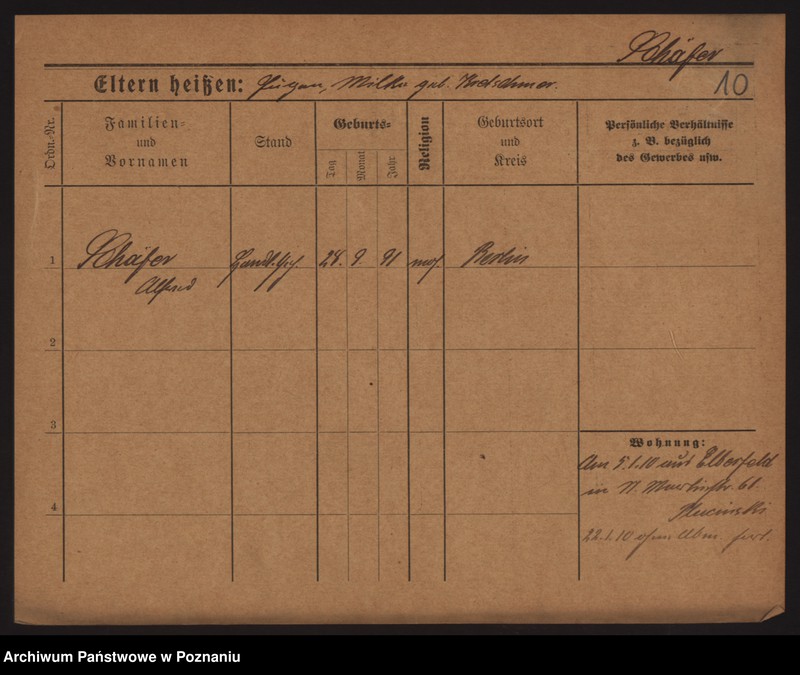 Schäfer
Eltern heißen: Milka geb. Kretschmer.
10
Ordn.-Nr.
Familien-
und
Vornamen
Stand
Geburts-
Tag
Monat
Jahr
Religion
Geburtsort
und
Kreis
Persönliche Verhältnisse
z. B. bezüglich
des Gewerbes usw.
1
Schäfer
Alfred
28. 9. 91
mos.
Berlin
2
3
4
Wohnung:
Am 5.1.10 aus Elberfeld
in
22.1.10 ohne Abm. fort.